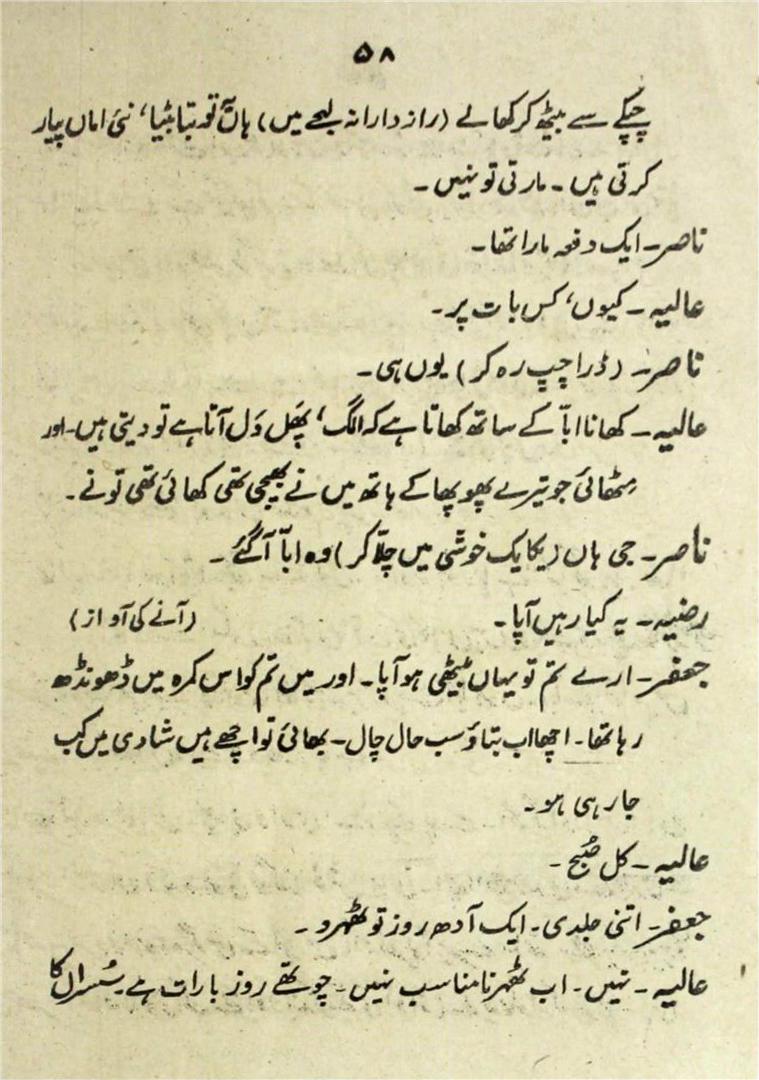 ۵۸
چپکے سے بیٹھ کر کھا لے (رازدارانہ لہجے میں) ہاں تو بتا بٹیا، نئی اماں پیار
کرتی ہیں۔ مارتی تو نہیں۔
ناصر۔ ایک دفعہ مارا تھا۔
عالیہ۔ کیوں، کس بات پر۔
ناصر۔ (ذرا چپ رہ کر) یوں ہی۔
عالیہ۔ کھانا ابّا کے ساتھ کھاتا ہے کہ الگ، پھَل وَل آتا ہے تو دیتی ہیں۔ اور
مِٹھائی جو تیرے پھوپھا کے ہاتھ میں نے بھیجی تھی کھائی تھی تونے۔
ناصر۔ جی ہاں (یکایک خوشی میں چلّا کر) وہ ابّا آگئے۔
رضیہ۔ یہ کیا رہیں آپا۔ (آنے کی آواز)
جعفر۔ ارے تم تو یہاں بیٹھی ہو آپا۔ اور میں تم کو اس کمرہ میں ڈھونڈھ
رہا تھا۔ اچھا اب بتاؤ سب حال چال۔ بھائی تو اچھے ہیں شادی میں کب
جا رہی ہو۔
عالیہ۔ کل صُبح۔
جعفر۔ اتنی جلدی۔ ایک آدھ روز تو ٹھہرو۔
عالیہ۔ نہیں۔ اب ٹھہرنا مناسب نہیں۔ چوتھے روز بارات ہے۔ سُسرال کا